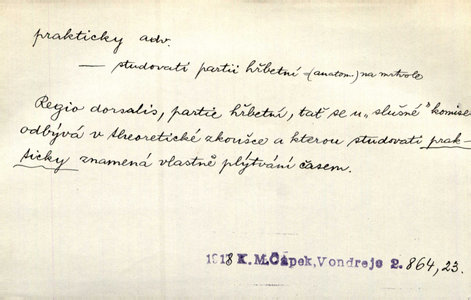 prakticky adv.
— studovati partii hřbetní (anatom.) na mrtvole
Regio dorsalis, partie hřbetní, tať se u „slušné" komise
odbývá v theoretické zkoušce a kterou studovati prak-
ticky znamená vlastně plýtvání časem.
1918 K. M. Čápek, Vondrejc 2. 864, 23.